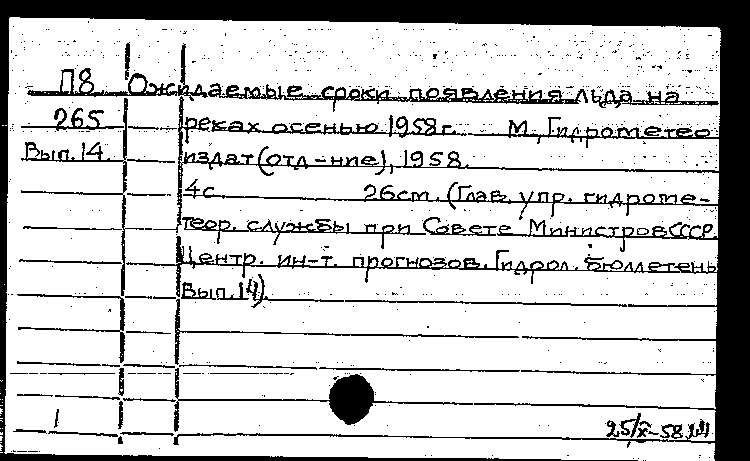 П8 Ожидаемые сроки появления льда на
265 реках осенью 1958г. М., Гидрометео
Вып.14 издат(отд-ние), 1958.
4с. 26см. (Глав. упр. гидроме-
теор. службы при Совете Министров СССР.
Центр. ин-т. прогнозов. Гидрол. бюллетень
Вып.14).
1
25/X-58